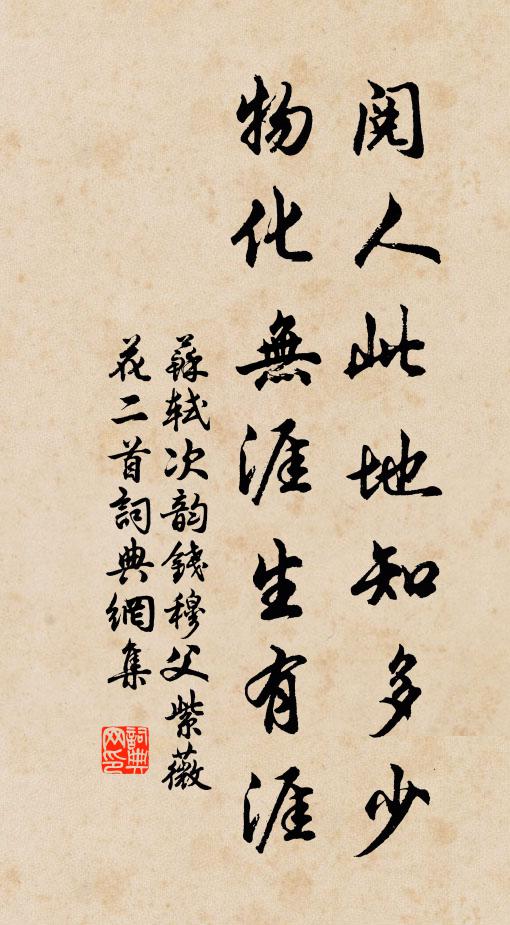 閱人此地知多少
物化無涯生有涯
蘇軾次韵錢穆父紫薇
花二首詞典網集
詞典网印